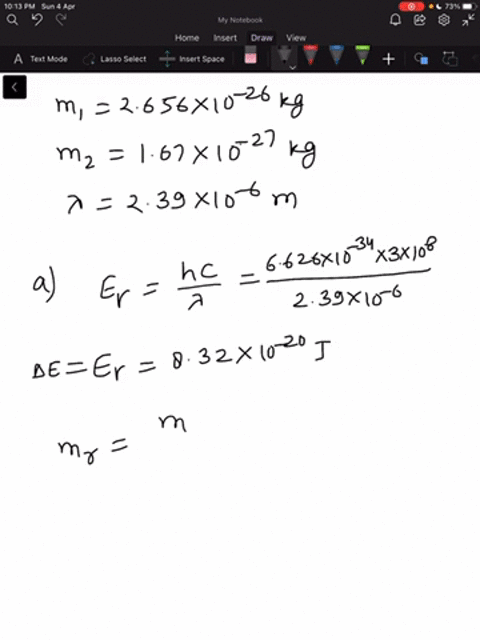 10:13 PM Sun 4 Apr 73%
My Notebook
Home Insert Draw View
Text Mode Lasso Select Insert Space
m₁ = 2.656×10⁻²⁶ kg
m₂ = 1.67×10⁻²⁷ kg
λ = 2.39×10⁻⁶ m
a) Er = hc/λ = 6.626×10⁻³⁴×3×10⁸/2.39×10⁻⁶
ΔE = Er = 8.32×10⁻²⁰ J
m
mr =